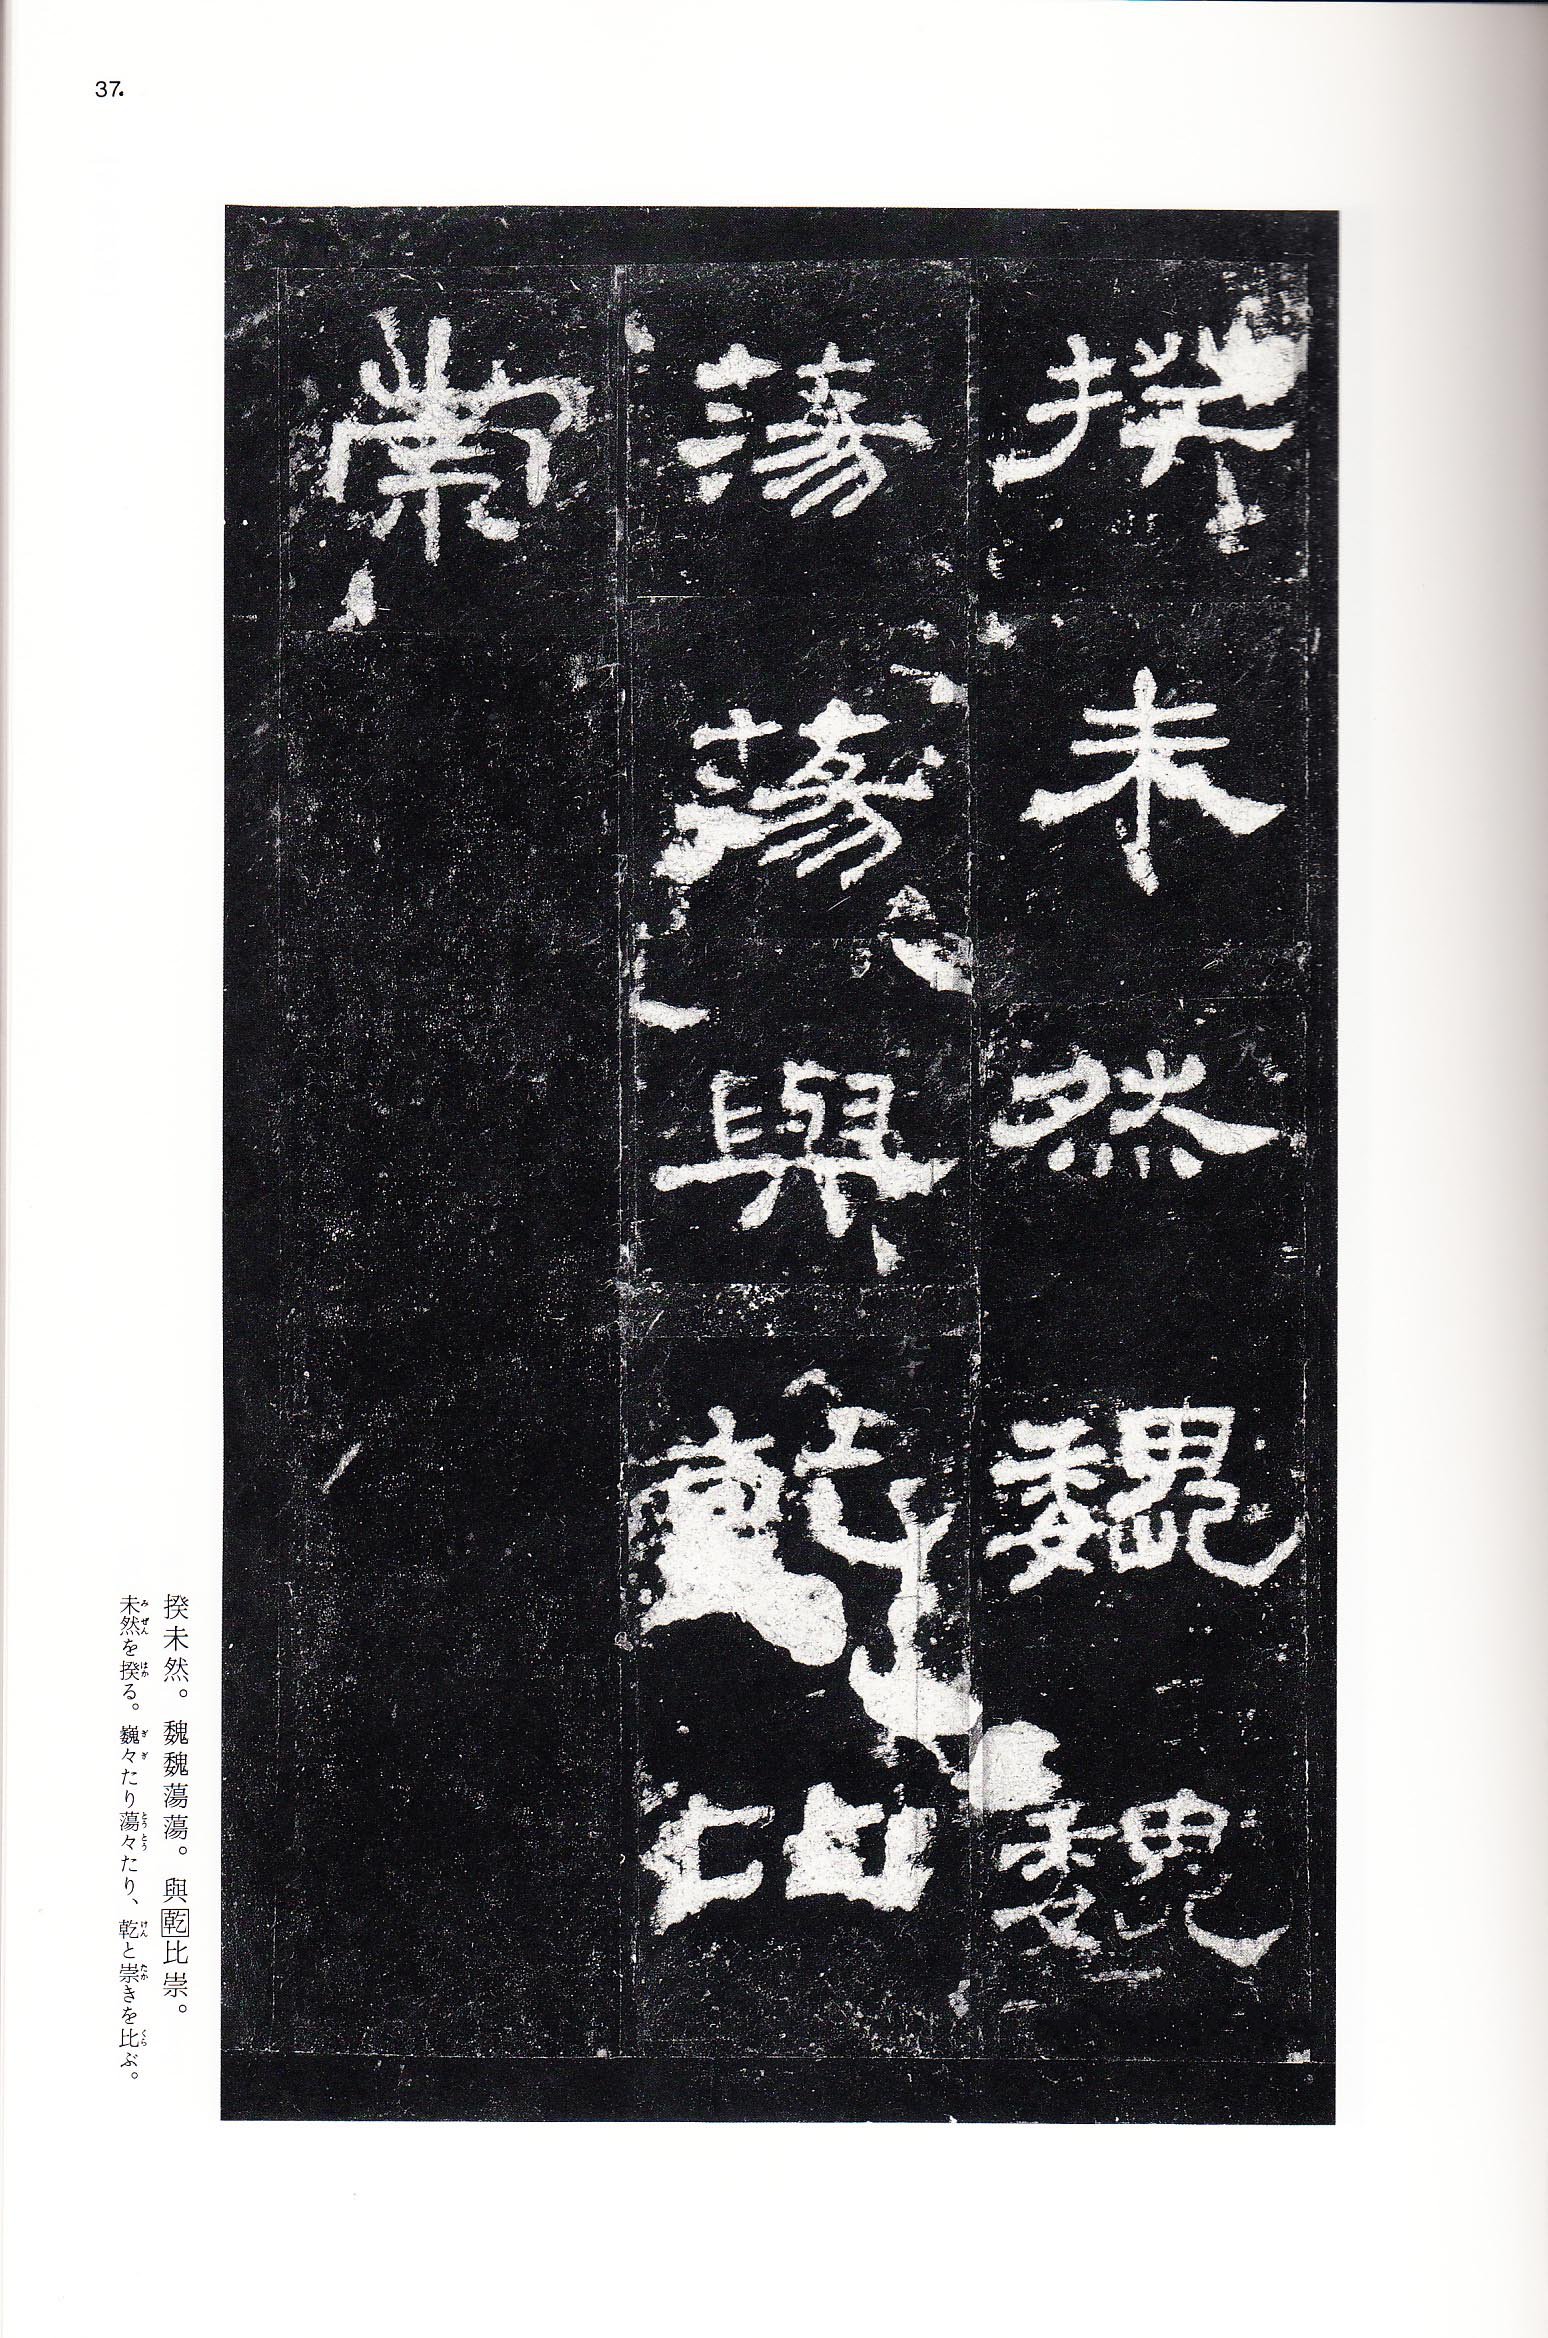 37.
揆未然魏魏
蕩蕩與乾比
崇
揆未然。魏魏蕩蕩。與乾比崇。
未然を揆る。巍々たり蕩々たり、乾と崇きを比ぶ。